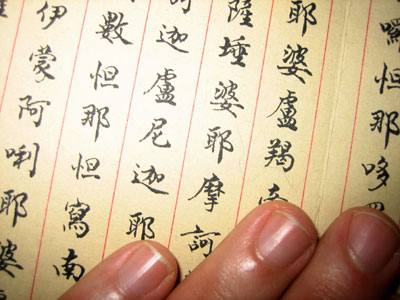 囉怛那哆
耶婆盧羯
薩埵婆耶摩訶
訶迦盧尼迦耶
數怛那怛寫南
伊蒙阿唎耶婆